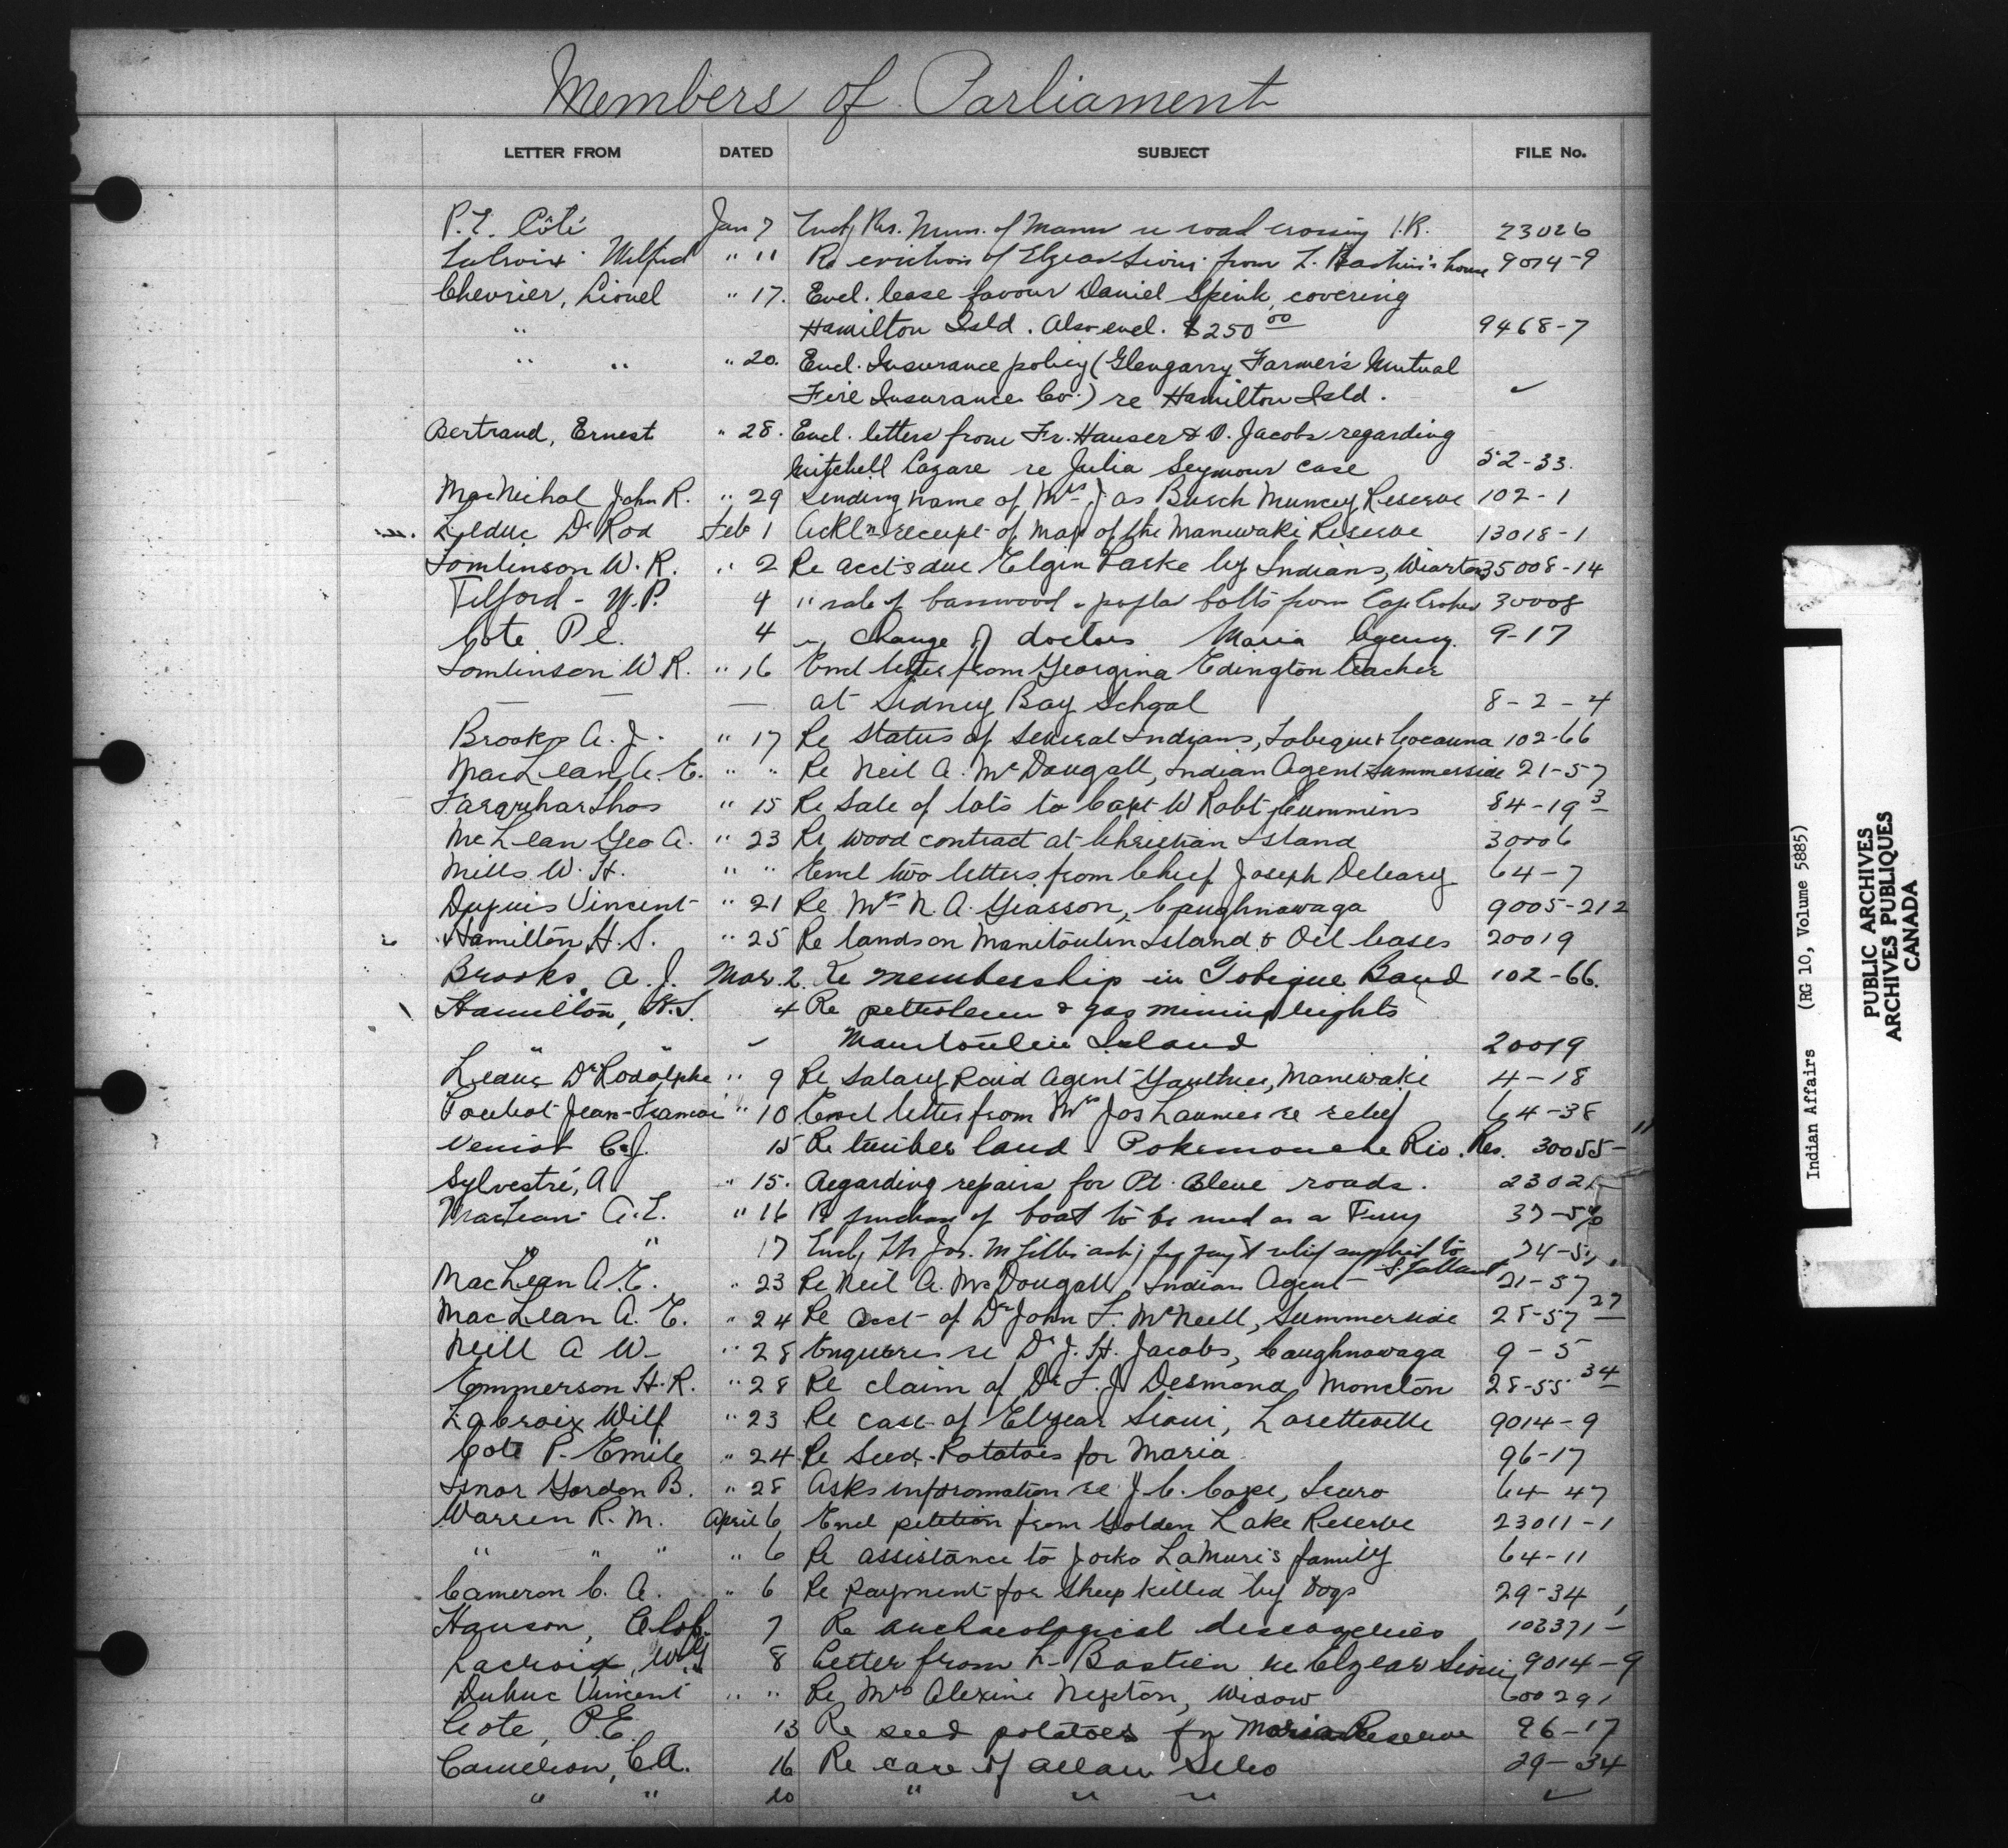 Members of Parliament
LETTER FROM DATED SUBJECT FILE No.
P.E. Côté Jan 7 Encl. Res. Mun. of Mann re road crossing I.R. 23026
Lacroix Wilfrid " 11 Re eviction of Elzear Sioui from L. Bastien's house 9014-9
Chevrier, Lionel " 17. Encl. lease favour Daniel Spink, covering
" Hamilton Isld. Also encl. $250 00 9468-7
" " " 20. Encl. Insurance policy (Glengarry Farmer's Mutual
Fire Insurance Co.) re Hamilton Isld. ✓
Bertrand, Ernest " 28. Encl. letters from Fr. Hauser & O. Jacobs regarding
Mitchell Lazare re Julia Seymour case 52-33.
MacNichol John R. " 29 Sending name of Mrs Jas Busch Muncey Reserve 102-1
Leduc Dr Rod Feb 1 Ackl'n receipt of map of the Maniwaki Reserve 13018-1
Tomlinson W. R. " 2 Re acct's due Elgin Paske by Indians, Wiarton 35008-14
Telford - W.P. 4 " sale of basswood & poplar bolts from Cape Croker 30008
Cote P.E. 4 " Change of doctors Maria Agency. 9-17
Tomlinson W R. " 16 Encl letter from Georgina Edington teacher
— — at Sidney Bay School 8-2-4
Brooks A. J. " 17 Re status of several Indians, Tobique & Cocauna 102-66
MacLean A. E. " " Re Neil A. McDougall, Indian Agent Summerside 21-57
Farquhar Thos " 15 Re Sale of lots to Capt W Robt Cummins 84-19 3
McLean Geo A. " 23 Re wood contract at Christian Island 30006
Mills W. H. " " Encl two letters from Chief Joseph Deleary 64-7
Dupuis Vincent " 21 Re Mrs N. A. Giasson, Caughnawaga 9005-212
Hamilton H. S. " 25 Re lands on Manitoulin Island & Oil leases 20019
Brooks, A. J. Mar. 2. Re membership in Tobique Band 102-66.
Hamilton, H.S. 4 Re petroleum & gas mining rights
" " ✓ Manitoulin Island 20019
Leduc Dr Rodolphe " 9 Re Salary Paid Agent Gauthier, Maniwaki 4-18
Pouliot Jean-Francois " 10 Encl letter from Mrs Jos Laumier re relief 64-38
Veniot C.J. 15 Re timber land Pokemouche Riv. Res. 30055-11
Sylvestre, A. " 15. Regarding repairs for Pt. Bleue roads. 23021
MacLean A.E. " 16 Re purchase of boat to be used as a Ferry 37-
" " 17 Encl. Jos. M Gillis ask'g for pay't relief supplied to S. Gallant 74-57
MacLean A. E. " 23 Re Neil A. McDougall, Indian Agent 21-57
MacLean A. E. " 24 Re Acct of Dr John F. McNeill, Summerside 28-57 27
Neill A W. " 28 Enquiries re Dr J. H. Jacobs, Caughnawaga 9-5
Emmerson H. R. " 28 Re claim of Dr F. J. Desmond Moncton 28-55 34
Lacroix Wilf " 23 Re case of Elzear Sioui, Loretteville 9014-9
Cote P. Emile " 24 Re Seed Potatoes for Maria 96-17
Isnor Gordon B. " 28 Asks information re J. C. Cope, Truro 64-47
Warren R. M. April 6 Encl petition from Golden Lake Reserve 23011-1
" " " " 6 Re assistance to Jocko LaMure's family 64-11
Cameron C. A. " 6 Re payment for Sheep killed by Dogs 29-34
Hanson, Olof. 7 Re archaeological discoveries 103371-1
Lacroix, Wilf 8 Letter from L. Bastien re Elzear Sioui 9014-9
Dubuc Vincent " " Re Mrs Alexine Newton, Widow 600291
Cote, P.E. 13 Re seed potatoes for Maria Reserve 96-17
Cameron, C.A. 16 Re care of Allan Silvo 29-34
" " 20 " " " ✓
Indian Affairs (RG 10, Volume 5885)
PUBLIC ARCHIVES
ARCHIVES PUBLIQUES
CANADA